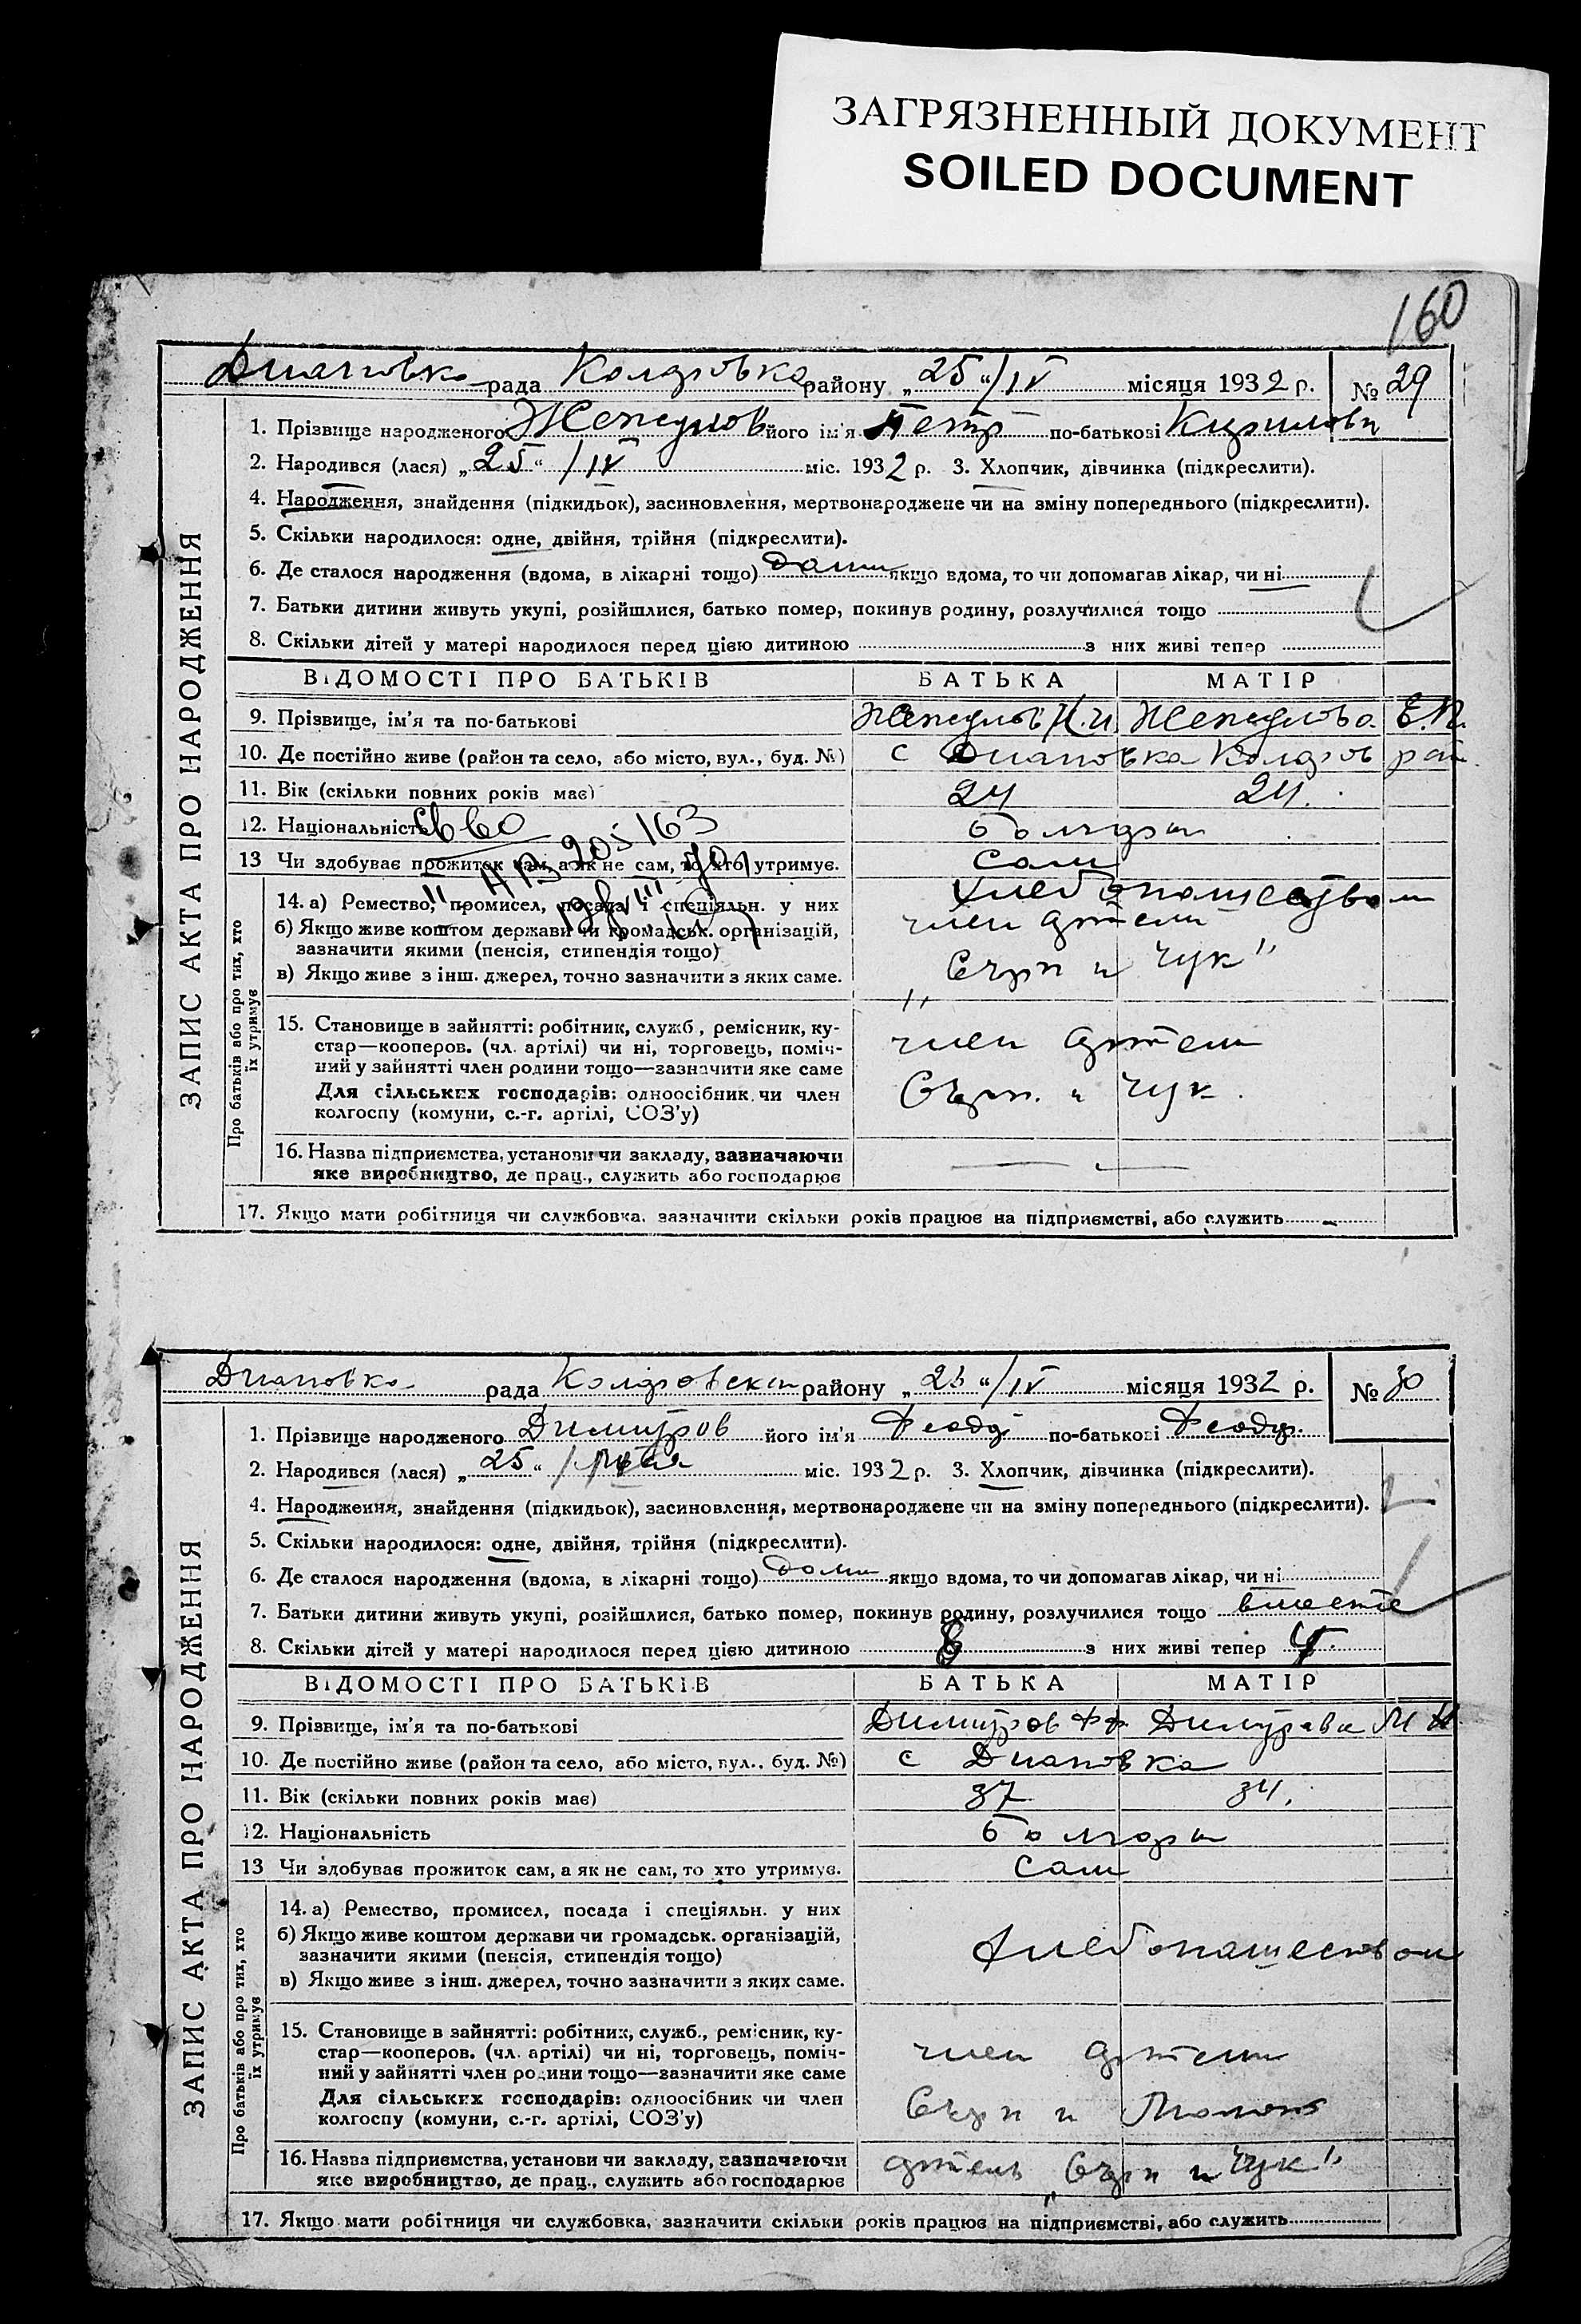 ЗАГРЯЗНЕННЫЙ ДОКУМЕНТ
SOILED DOCUMENT
160
Диановка рада Колдровка району „25“/IV місяця 1932 р. № 29
1. Прізвище народженого його ім'я Петр по-батькові
2. Народився (лася) „25“ /IV міс. 1932 р. 3. Хлопчик, дівчинка (підкреслити).
4. Народження, знайдення (підкидьок), засиновлення, мертвонароджене чи на зміну попереднього (підкреслити).
5. Скільки народилося: одне, двійня, трійня (підкреслити).
6. Де сталося народження (вдома, в лікарні тощо) дома якщо вдома, то чи допомагав лікар, чи ні
7. Батьки дитини живуть укупі, розійшлися, батько помер, покинув родину, розлучилися тощо
8. Скільки дітей у матері народилося перед цією дитиною з них живі тепер
ВІДОМОСТІ ПРО БАТЬКІВ БАТЬКА МАТІР
9. Прізвище, ім'я та по-батькові
10. Де постійно живе (район та село, або місто, вул., буд. №) с Диановка
11. Вік (скільки повних років має) 24 24.
12. Національність болгары
13 Чи здобуває прожиток сам, а як не сам, то хто утримує. Сами
14. а) Ремество, промисел, посада і спеціяльн. у них хлебопашеством
б) Якщо живе коштом держави чи громадськ. організацій, член артели
зазначити якими (пенсія, стипендія тощо)
в) Якщо живе з інш. джерел, точно зазначити з яких саме. „Сърп и Чук"
15. Становище в зайнятті: робітник, служб., ремісник, ку-
стар—кооперов. (чл. артілі) чи ні, торговець, поміч- член артели
ний у зайнятті член родини тощо—зазначити яке саме
Для сільських господарів: одноосібник чи член Сърп. и Чук.
колгоспу (комуни, с.-г. артілі, СОЗ'у)
16. Назва підприємства, установи чи закладу, зазначаючи
яке виробництво, де прац., служить або господарює
17. Якщо мати робітниця чи службовка, зазначити скільки років працює на підприємстві, або служить
ЗАПИС АКТА ПРО НАРОДЖЕННЯ
Про батьків або про тих, хто
їх утримує
Диановка рада району „25“/IV місяця 1932 р. № 30
1. Прізвище народженого Димитров його ім'я Феодр по-батькові Феодр.
2. Народився (лася) „25“ / міс. 1932 р. 3. Хлопчик, дівчинка (підкреслити).
4. Народження, знайдення (підкидьок), засиновлення, мертвонароджене чи на зміну попереднього (підкреслити).
5. Скільки народилося: одне, двійня, трійня (підкреслити).
6. Де сталося народження (вдома, в лікарні тощо) дома якщо вдома, то чи допомагав лікар, чи ні
7. Батьки дитини живуть укупі, розійшлися, батько помер, покинув родину, розлучилися тощо вместе
8. Скільки дітей у матері народилося перед цією дитиною 8 з них живі тепер
ВІДОМОСТІ ПРО БАТЬКІВ БАТЬКА МАТІР
9. Прізвище, ім'я та по-батькові Димитров Ф.Ф. Димитрова М Н
10. Де постійно живе (район та село, або місто, вул., буд. №) с Диановка
11. Вік (скільки повних років має) 37 34.
12. Національність болгары
13 Чи здобуває прожиток сам, а як не сам, то хто утримує. сами
14. а) Ремество, промисел, посада і спеціяльн. у них
б) Якщо живе коштом держави чи громадськ. організацій, хлебопашеством
зазначити якими (пенсія, стипендія тощо)
в) Якщо живе з інш. джерел, точно зазначити з яких саме.
15. Становище в зайнятті: робітник, служб., ремісник, ку-
стар—кооперов. (чл. артілі) чи ні, торговець, поміч- член артели
ний у зайнятті член родини тощо—зазначити яке саме
Для сільських господарів: одноосібник чи член Сърп и Молот
колгоспу (комуни, с.-г. артілі, СОЗ'у)
16. Назва підприємства, установи чи закладу, зазначаючи артель „Сърп и Чук"
яке виробництво, де прац., служить або господарює
17. Якщо мати робітниця чи службовка, зазначити скільки років працює на підприємстві, або служить
ЗАПИС АКТА ПРО НАРОДЖЕННЯ
Про батьків або про тих, хто
їх утримує